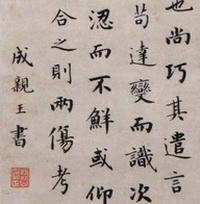 也尚巧其遣言
苟達變而識次
涊而不鮮或仰
合之則兩傷考
成親王書